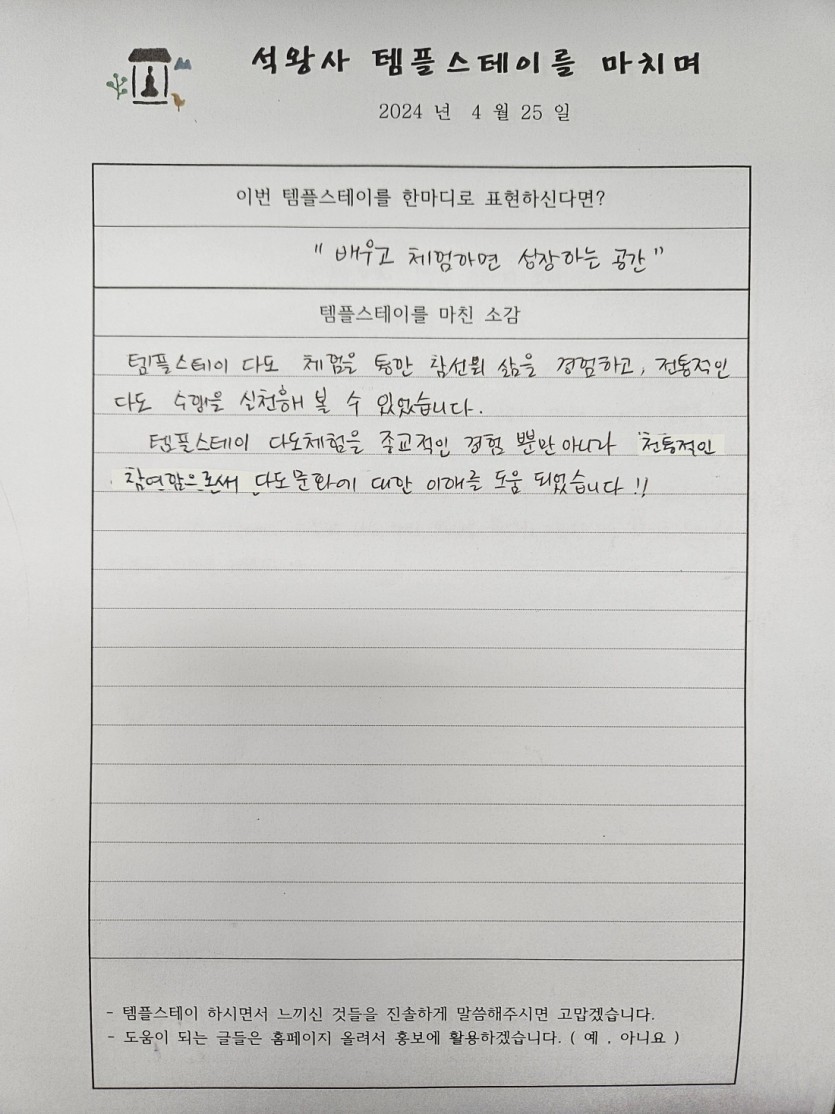 석왕사 템플스테이를 마치며
2024 년 4 월 25 일
이번 템플스테이를 한마디로 표현하신다면?
" 배우고 체험하면 성장하는 공간 "
템플스테이를 마친 소감
템플스테이 다도 체험을 통한 참선의 삶을 경험하고, 전통적인
다도 수행을 실천해 볼 수 있었습니다.
템플스테이 다도체험을 종교적인 경험 뿐만 아니라 전통적인
참여함으로써 다도문화에 대한 이해를 도움 되었습니다 !!
- 템플스테이 하시면서 느끼신 것들을 진솔하게 말씀해주시면 고맙겠습니다.
- 도움이 되는 글들은 홈페이지 올려서 홍보에 활용하겠습니다. ( 예 , 아니요 )